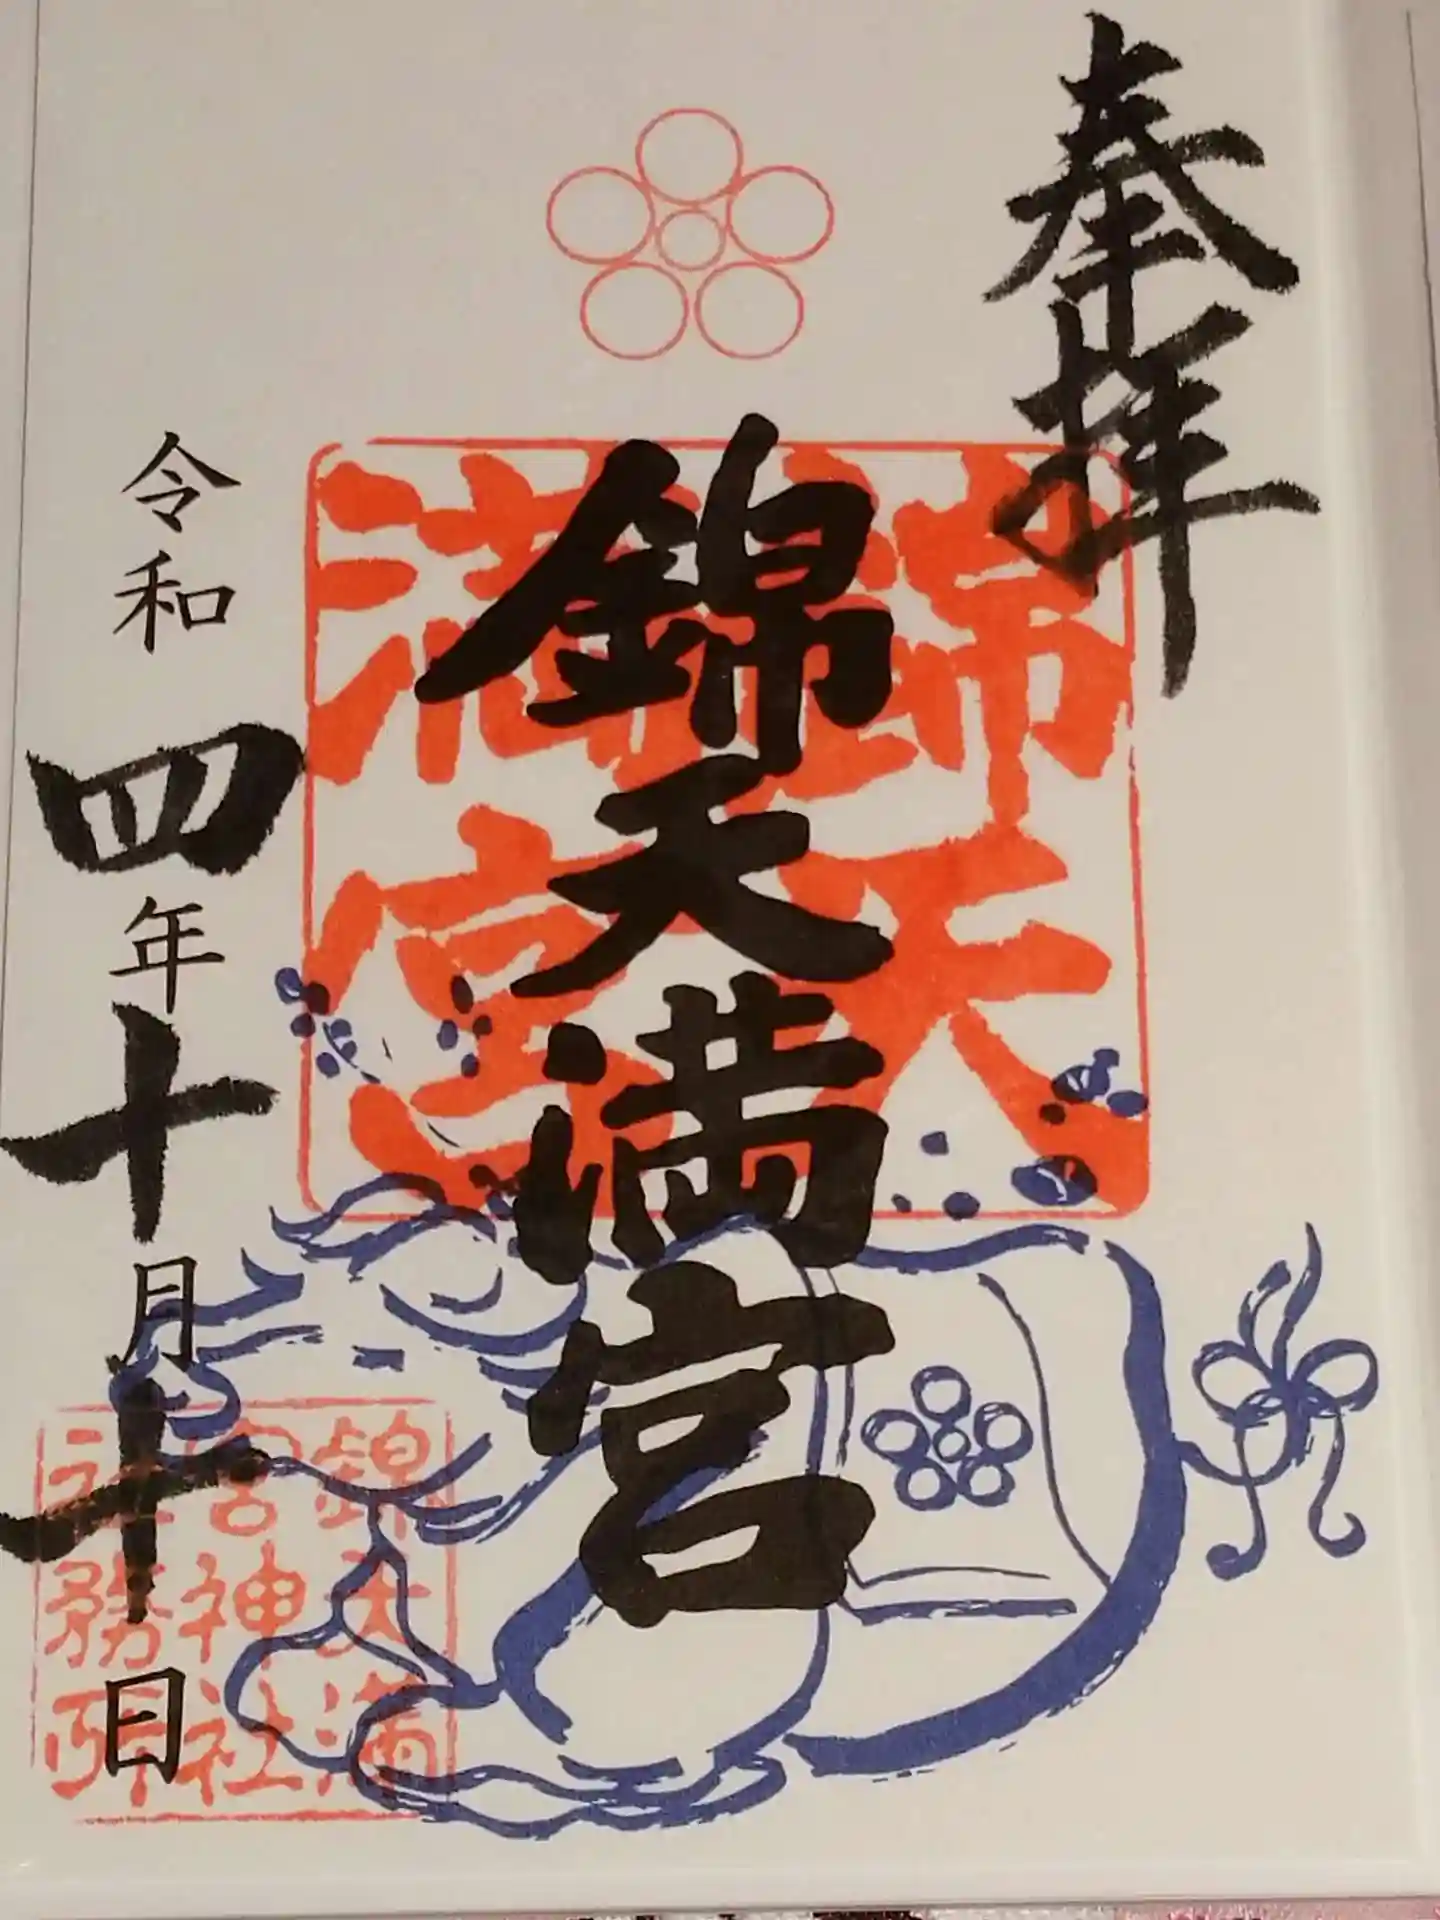 奉拝
錦天満宮
錦天
満宮
令和四年十月十日
錦天満
宮神社
社務所